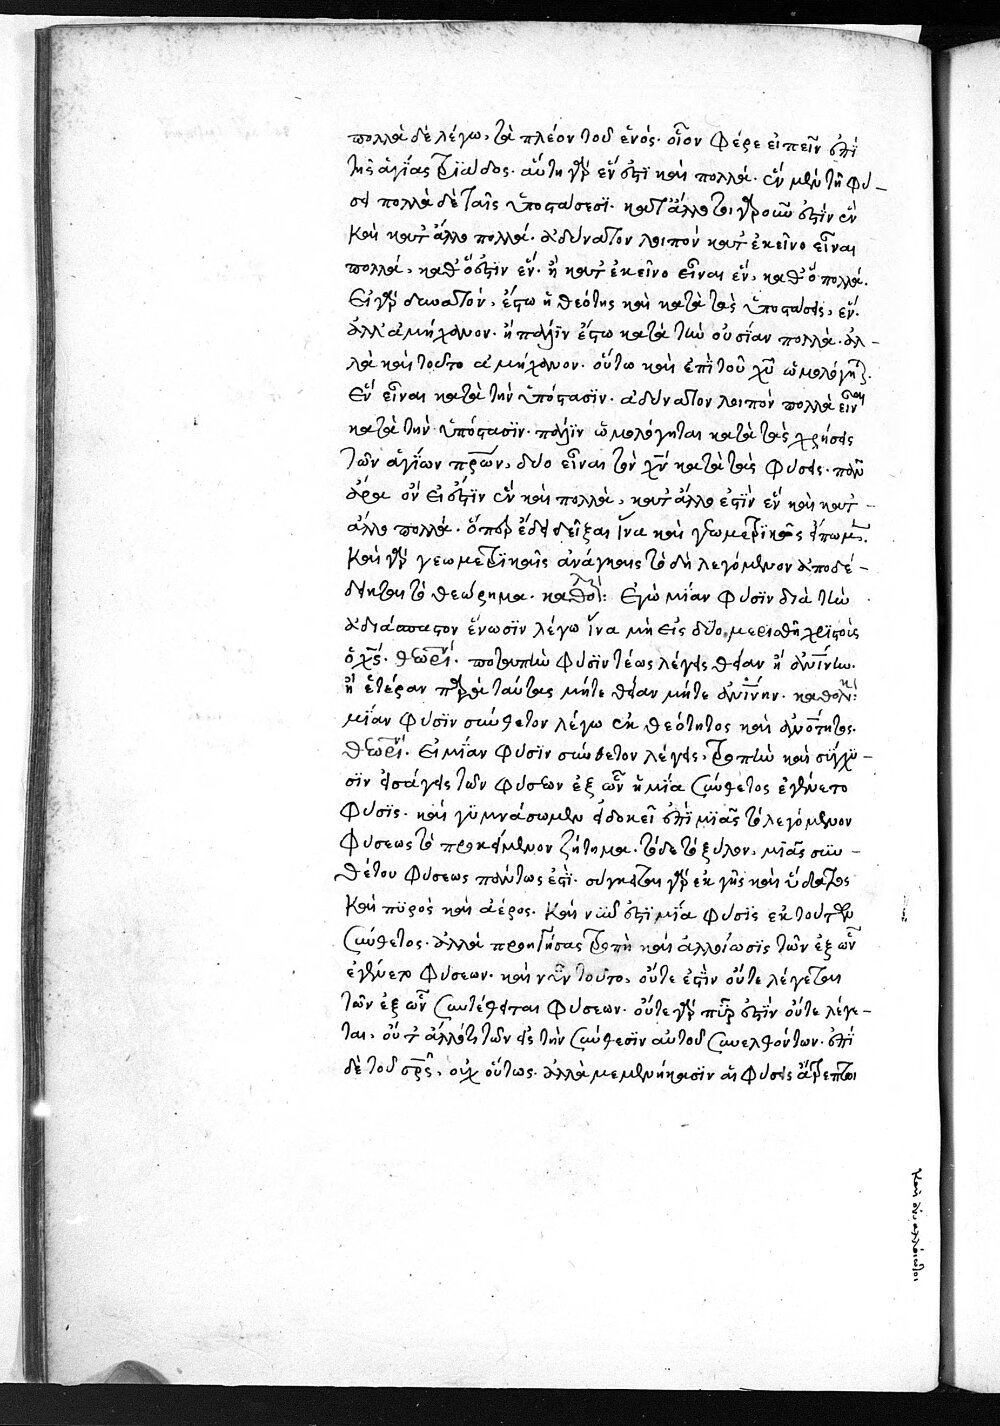 πολλὰ δὲ λέγω, τὰ πλέον τοῦ ἑνός. οἷον φέρε εἰπεῖν ἐπὶ
τῆς ἁγίας τριάδος. αὕτη γὰρ ἕν ἐστι καὶ πολλά. ἓν μὲν τῇ φύ-
σει πολλὰ δὲ ταῖς ὑποστάσεσι. κατ' ἄλλο τι γὰρ οὖν ἐστὶν ἓν
καὶ κατ' ἄλλο πολλά. ἀδύνατον λοιπὸν κατ' ἐκεῖνο εἶναι
πολλά, καθ' ὅ ἐστιν ἕν. ἢ κατ' ἐκεῖνο εἶναι ἕν, καθ' ὃ πολλά.
εἰ γὰρ δυνατόν, ἔστω ἡ θεότης καὶ κατὰ τὰς ὑποστάσεις, ἕν.
ἀλλ' ἀμήχανον. ἢ πάλιν ἔστω κατὰ τὴν οὐσίαν πολλά. ἀλ-
λὰ καὶ τοῦτο ἀμήχανον. οὕτω καὶ ἐπὶ τοῦ χυ ὡμολόγηται
ἓν εἶναι κατὰ τὴν ὑπόστασιν. ἀδύνατον λοιπὸν πολλὰ εἶναι
κατὰ τὴν ὑπόστασιν. πάλιν ὡμολόγηται κατὰ τὰς χρήσεις
τῶν ἁγίων πρων, δύο εἶναι τὸν χν κατὰ τὰς φύσεις.
ἄρα οὖν εἰ ἐστὶν ἓν καὶ πολλά, κατ' ἄλλο ἐστὶν ἓν καὶ κατ'
ἄλλο πολλά. ὅπερ ἔδει δεῖξαι ἵνα καὶ γεωμετρικῶς εἴπωμεν.
καὶ γὰρ γεωμετρικαῖς ἀνάγκαις τὸ δὴ λεγόμενον ἀποδέ-
δεικται τὸ θεώρημα. Ἐγὼ μίαν φύσιν διὰ τὴν
ἀδιάσπαστον ἕνωσιν λέγω ἵνα μὴ εἰς δύο μερισθῇ χριστοὺς
ὁ χς. ποταπὴν φύσιν τέως λέγεις θείαν ἢ ἀνίνην.
ἢ ἑτέραν παρὰ ταύτας μήτε θείαν μήτε ἀνίνην.
μίαν φύσιν σύνθετον λέγω ἐκ θεότητος καὶ ἀνότητος.
Εἰ μίαν φύσιν σύνθετον λέγεις, τροπὴν καὶ σύγχυ-
σιν εἰσάγεις τῶν φύσεων ἐξ ὧν ἡ μία σύνθετος ἐγένετο
φύσις. καὶ γυμνάσωμεν εἰ δοκεῖ ἐπὶ μιᾶς τὸ λεγόμενον
φύσεως τὸ προκείμενον ζήτημα. τόδε τὸ ξύλον, μιᾶς συν-
θέτου φύσεως πάντως ἐστί. σύγκειται γὰρ ἐκ γῆς καὶ ὕδατος
καὶ πυρὸς καὶ ἀέρος. καὶ νῦν ἐστι μία φύσις ἐκ τούτων
σύνθετος. ἀλλὰ προηγήσατο τροπὴ καὶ ἀλλοίωσις τῶν ἐξ ὧν
ἐγένετο φύσεων. καὶ νῦν τοῦτο, οὔτε ἐστὶν οὔτε λέγεται
τῶν ἐξ ὧν συντέθειται φύσεων. οὔτε γὰρ πῦρ ἐστὶν οὔτε λέγε-
ται, οὔτ' ἄλλό τι τῶν εἰς τὴν σύνθεσιν αὐτοῦ συνελθόντων. ἐπὶ
δὲ τοῦ σρς, οὐχ οὕτως. ἀλλὰ μεμενήκασιν αἱ φύσεις ἄτρεπτοι
καὶ ἀναλλοίωτοι